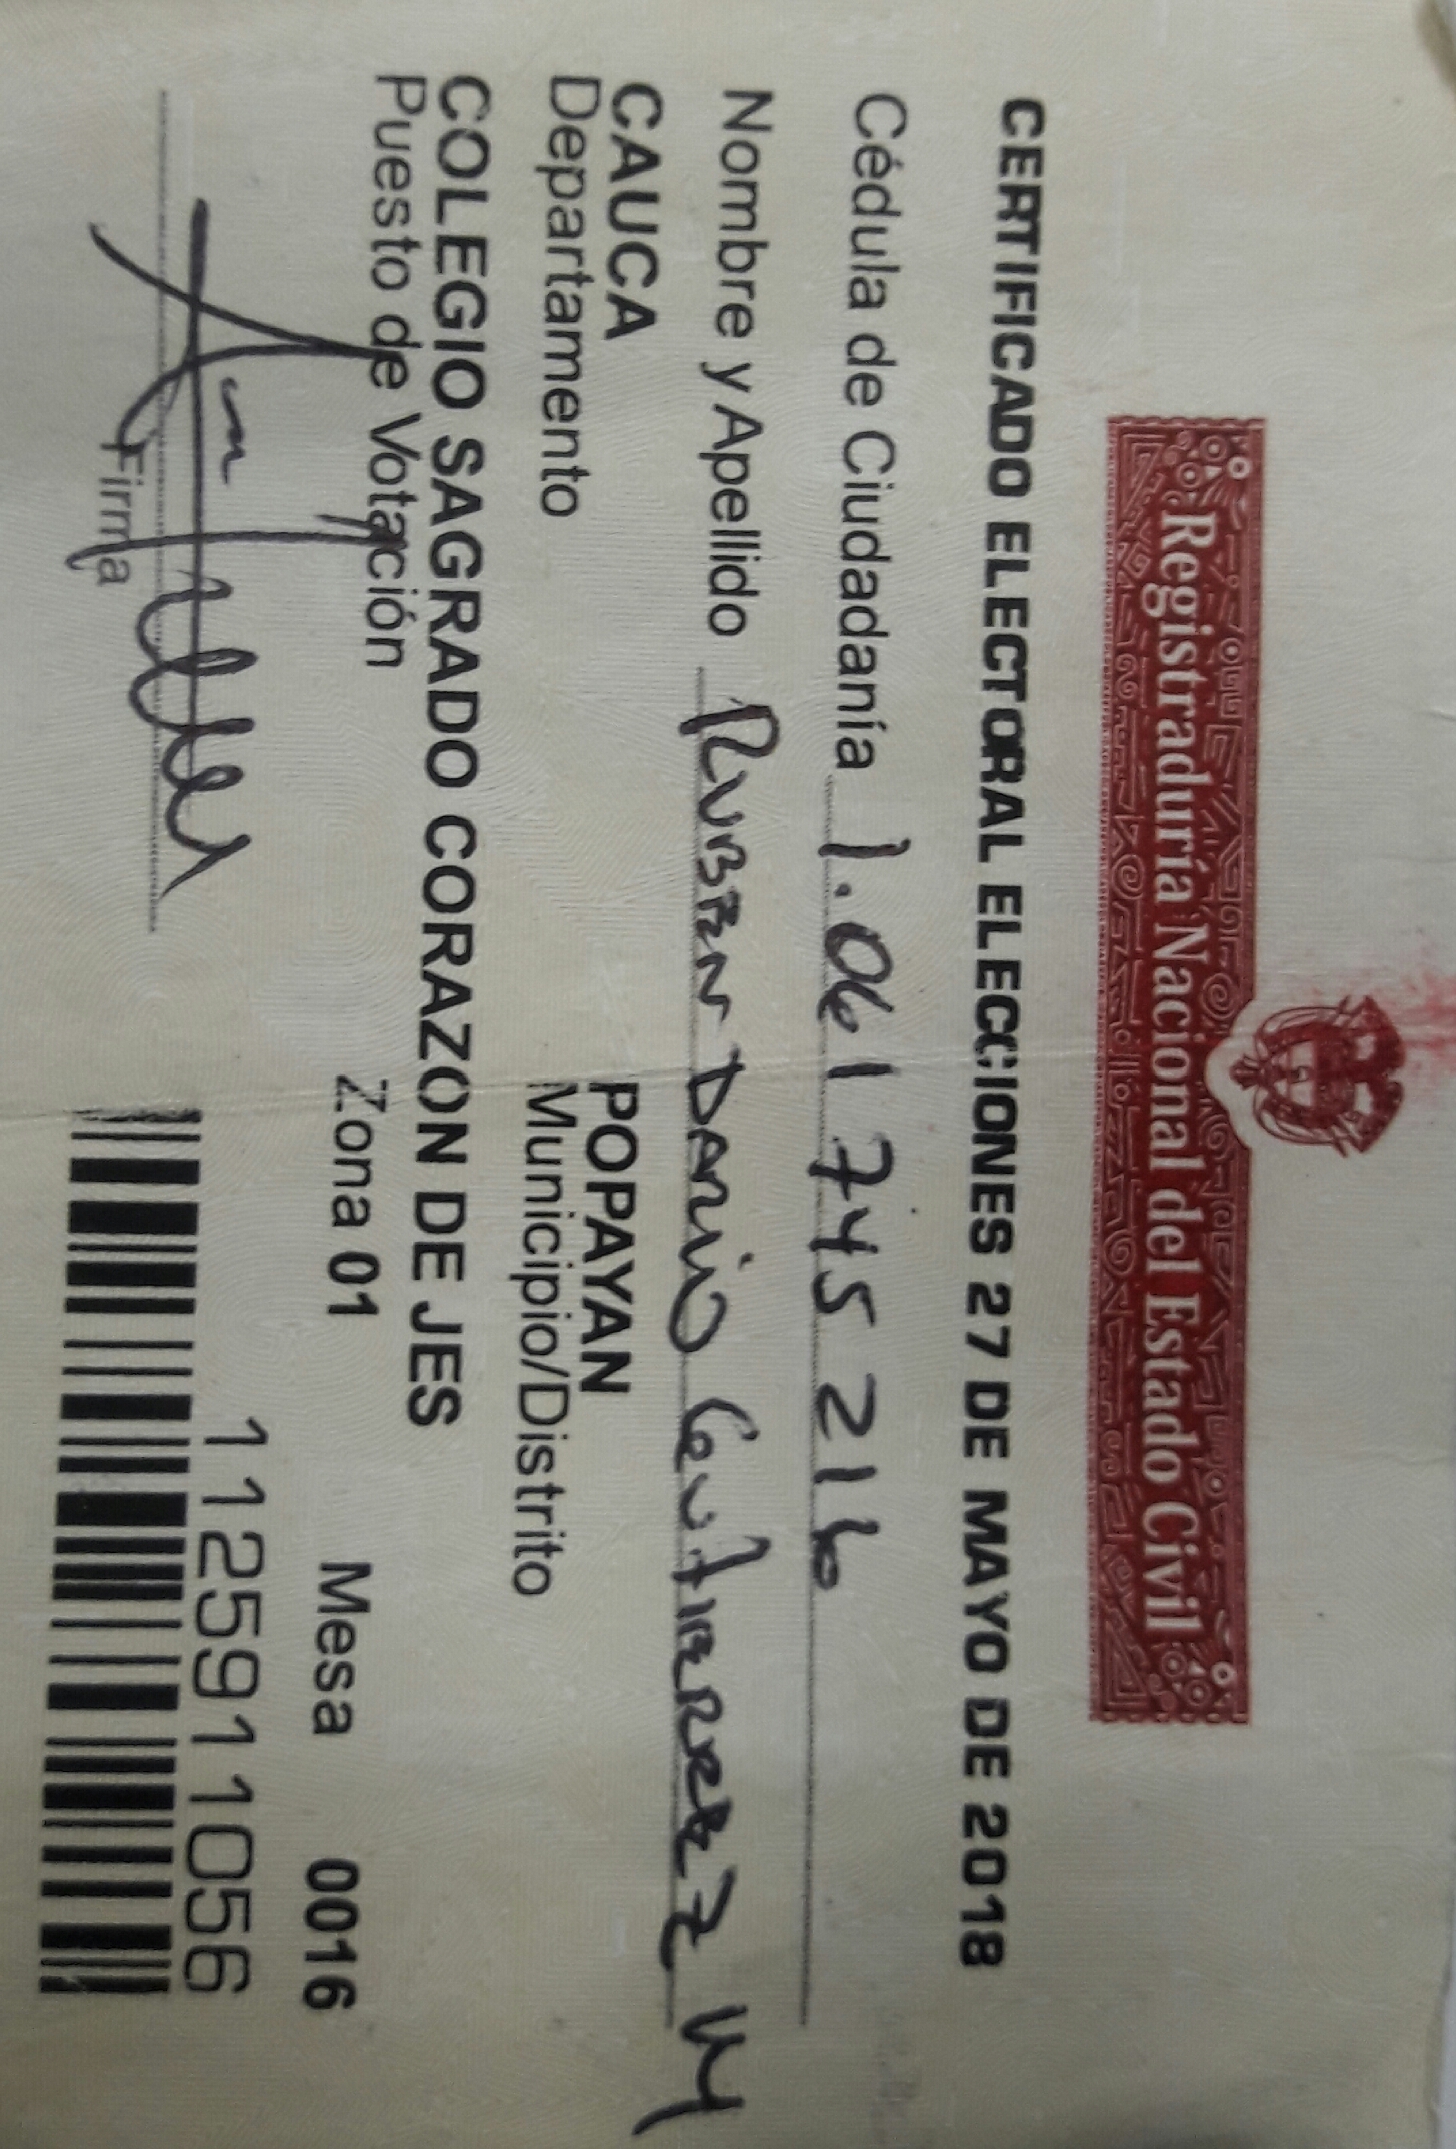 Registraduría Nacional del Estado Civil
CERTIFICADO ELECTORAL ELECCIONES 27 DE MAYO DE 2018
Cédula de Ciudadanía 1.061745216
Nombre y Apellido RUBEN DARIO GUTIERREZ M
CAUCA POPAYAN
Departamento Municipio/Distrito
COLEGIO SAGRADO CORAZON DE JES
Puesto de Votación Zona 01 Mesa 0016
1125911056
Firma